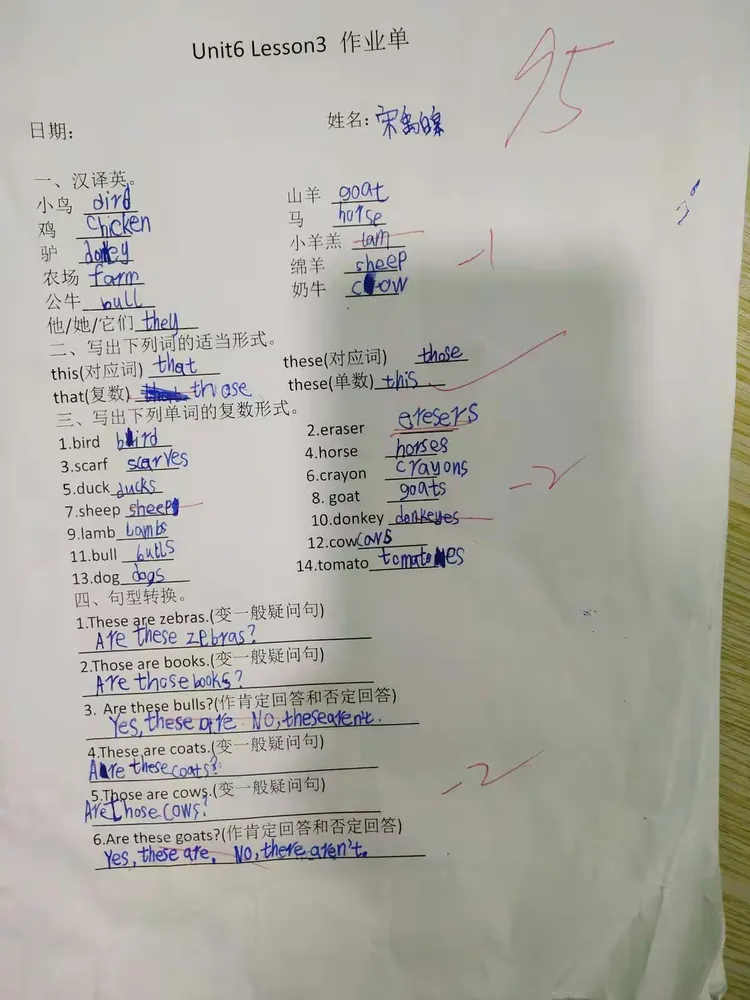 Unit6 Lesson3 作业单
95
日期: 姓名:宋
一、汉译英。
小鸟 dird 山羊 goat
鸡 chicken 马 horse
驴 donkey 小羊羔 lam
-1
农场 farm 绵羊 sheep
公牛 bull 奶牛 cow
他/她/它们 they
二、写出下列词的适当形式。
this(对应词) that these(对应词) those
that(复数) those these(单数) this
三、写出下列单词的复数形式。
1.bird bird 2.eraser eresers
3.scarf scarves 4.horse horses
5.duck ducks 6.crayon crayons
-2
7.sheep sheep 8. goat goats
9.lamb lambs 10.donkey donkeyes
11.bull bulls 12.cow cows
13.dog dogs 14.tomato tomatoes
四、句型转换。
1.These are zebras.(变一般疑问句)
Are these zebras?
2.Those are books.(变一般疑问句)
Are those books?
3. Are these bulls?(作肯定回答和否定回答)
Yes, these are. No, these aren't.
4.These are coats.(变一般疑问句)
Are these coats?
5.Those are cows.(变一般疑问句)
Are Those cows?
-2
6.Are these goats?(作肯定回答和否定回答)
Yes, these are. No, there aren't.